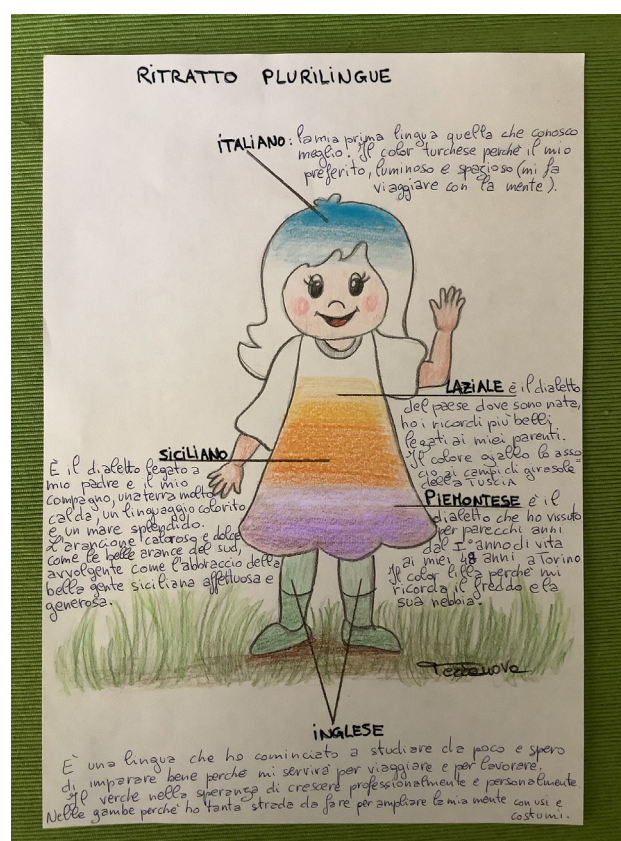 RITRATTO PLURILINGUE
ITALIANO: la mia prima lingua quella che conosco
meglio. Il color turchese perchè il mio
preferito, luminoso e spazioso (mi fa
viaggiare con la mente).
LAZIALE è il dialetto
del paese dove sono nata,
ho i ricordi più belli
legati ai miei parenti.
Il colore giallo lo asso
cio ai campi di girasole
della TUSCIA
SICILIANO
È il dialetto legato a
mio padre e il mio
compagno, una terra molto
calda, un linguaggio colorito
e un mare splendido.
L'arancione caloroso e dolce
come le belle arance del sud,
avvolgente come l'abbraccio della
bella gente siciliana affettuosa e
generosa.
PIEMONTESE è il
dialetto che ho vissuto
per parecchi anni
dal I° anno di vita
ai miei 48 anni a Torino
Il color lilla perchè mi
ricorda il freddo e la
sua nebbia.
Terranova
INGLESE
È una lingua che ho cominciato a studiare da poco e spero
di imparare bene perchè mi servirà per viaggiare e per lavorare.
Il verche nella speranza di crescere professionalmente e personalmente
Nelle gambe perchè ho tanta strada da fare per ampliare la mia mente con usi e
costumi.